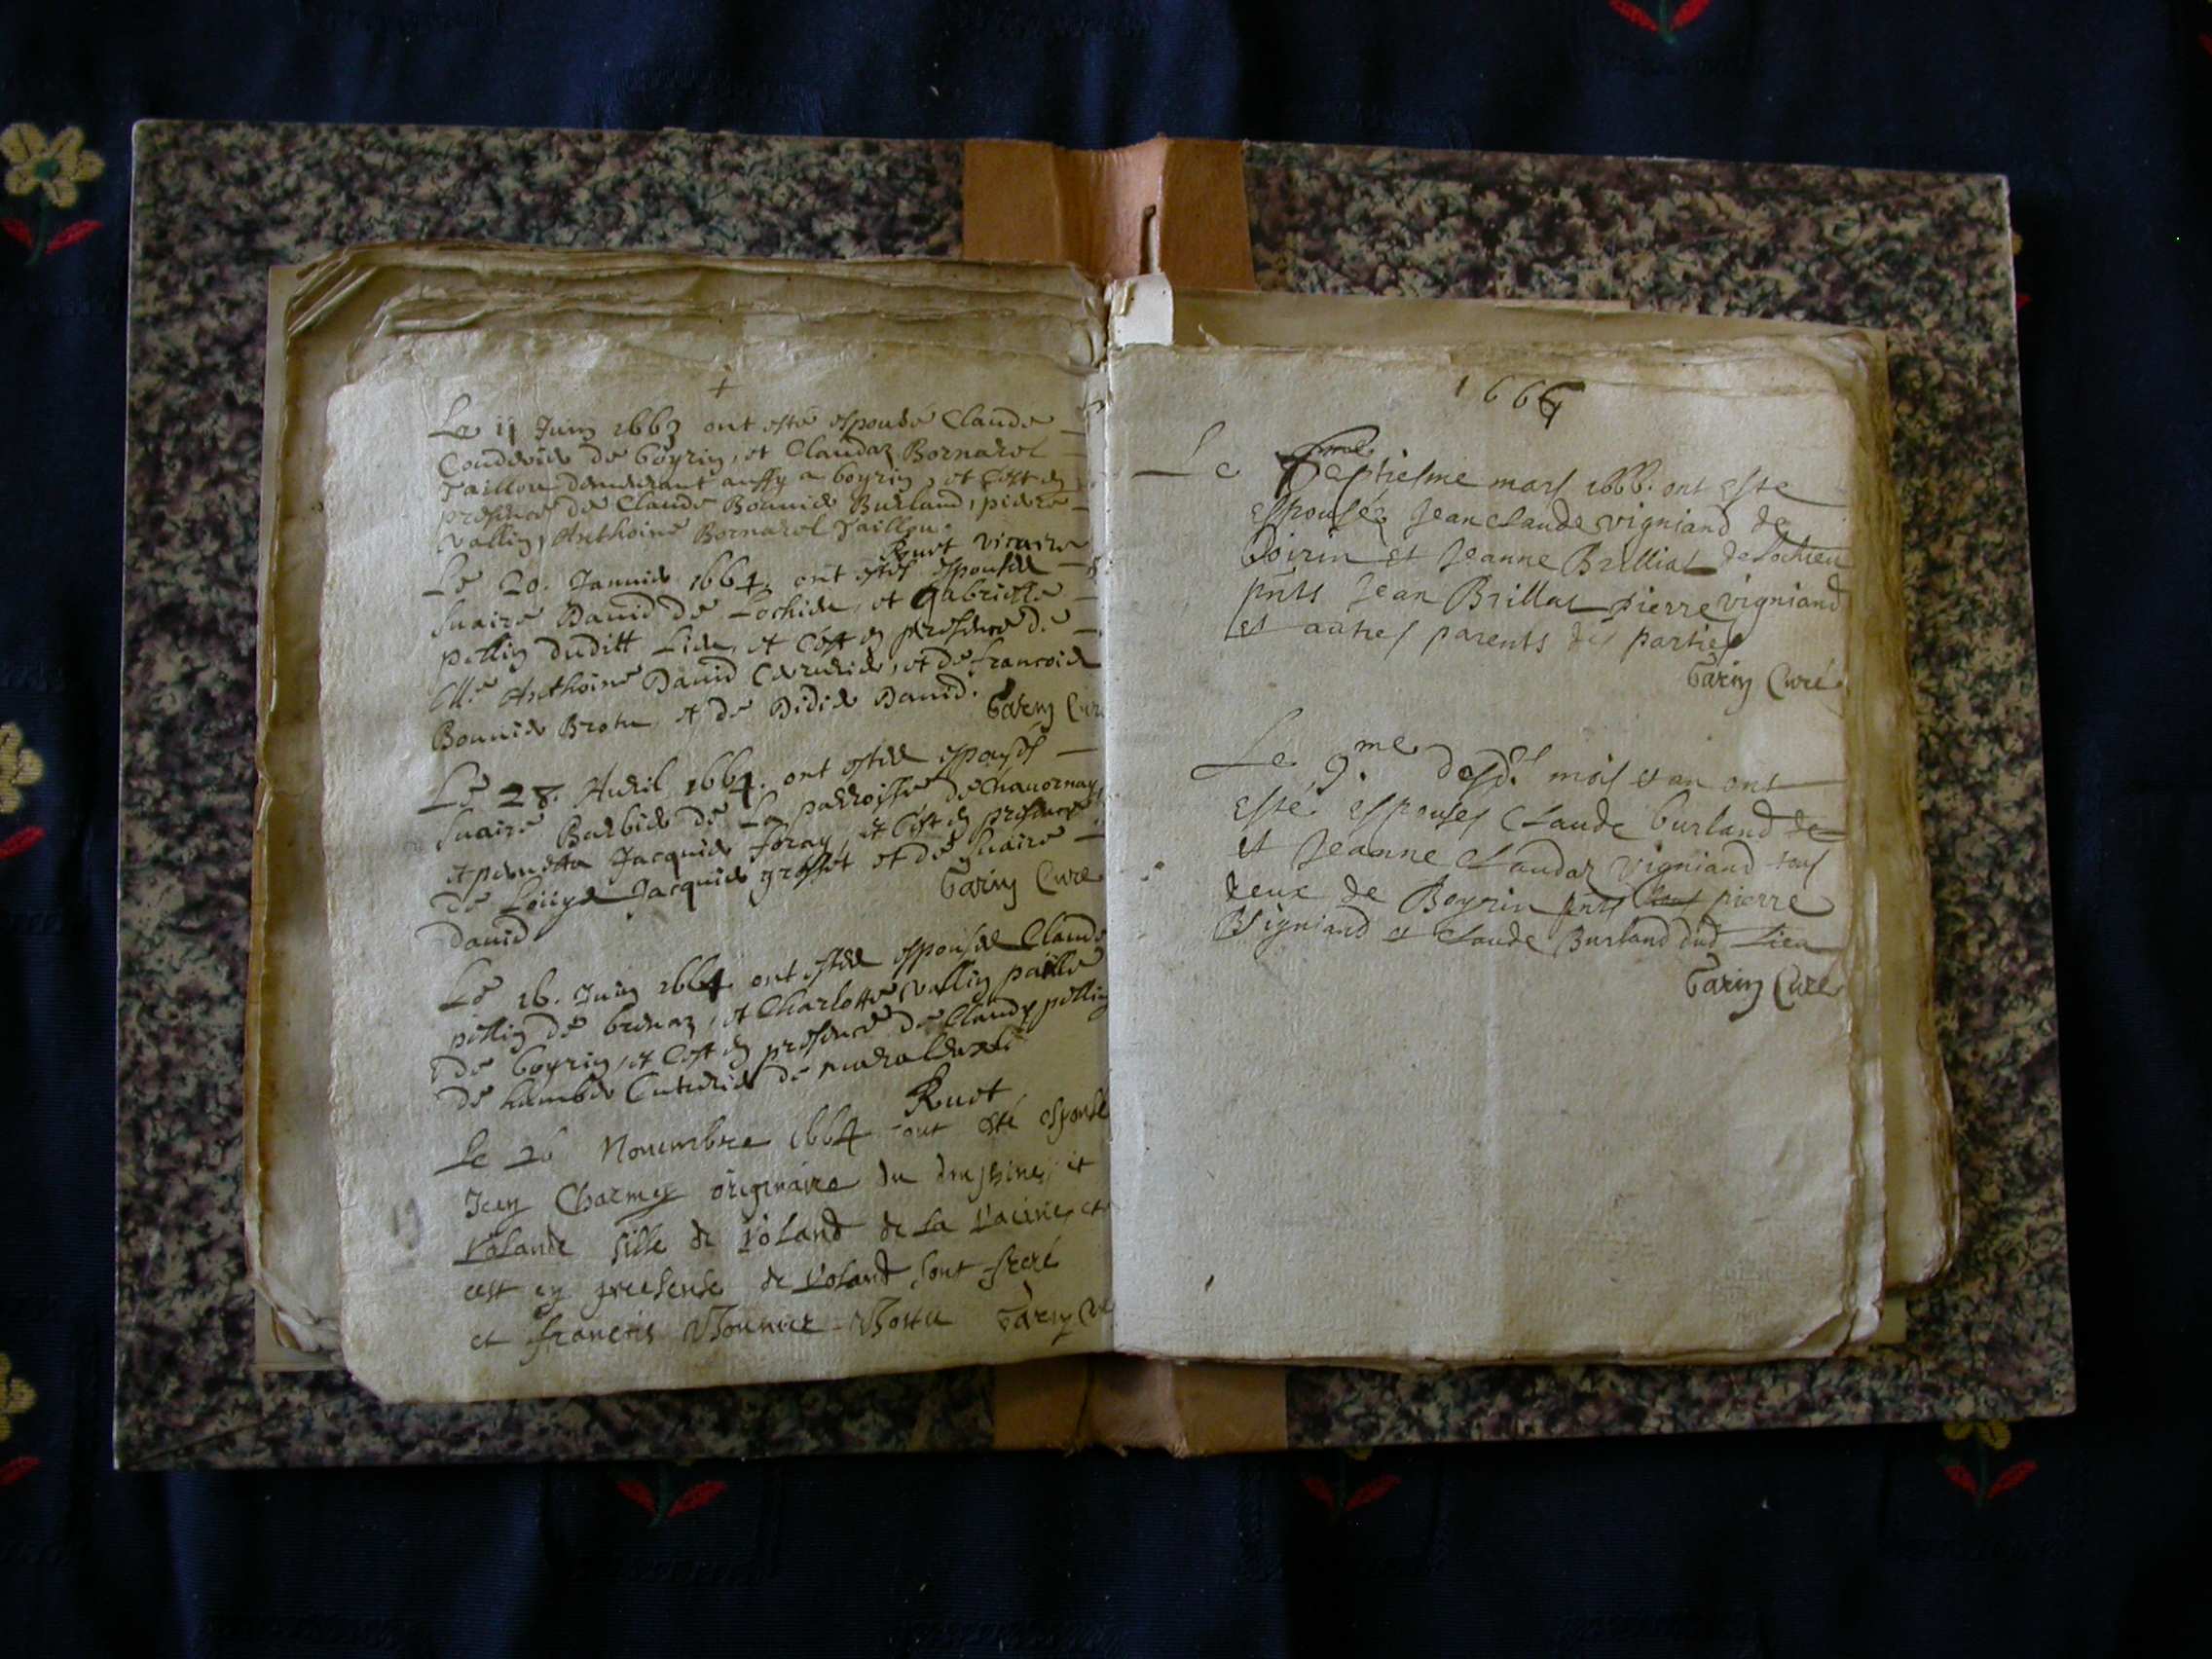 Le 11 Juin 1663 ont esté espousé Claude
de boyrin, et Claudaz Bornarel
Taillon demeurant aussy a boyrin, et c'est en
presence de Claude Bonnier Burland, pierre
Vallin, Anthoine Bornarel Taillon.
Ruet vicaire
Le 20. Januier 1664. ont estés espousés
suaire Dauid de Lochieu, et Gabrielle
pellin duditt Lieu, et c'est en presence de
Mre Anthoine Dauid, et de francois
Bonnier Brotu et de Didier Dauid.
Garin Curé
Le 28. Auril 1664. ont estés espousés
suaire Barbier de La parroisse de Chauornay
et pernetta Jacquier foray, et c'est en presence
de Jacquier grosset et de suaire
dauid
Garin Curé
Le 16. Juin 1664 ont estés espousés Claude
pellin de brenaz, et Charlotte Vallin
de boyrin, et c'est en presence de Claude pellin
de
Ruet
Le 26 Nouembre 1664 ont esté espousé
Jean Charmey originaire du et
Rolande fille de Roland de La et
cest en presense de Roland son frere
et francois Bonnier Garin Curé
1666
Le 7me septiesme mars 1666. ont esté
espousés Jean claude vigniand de
boirin et Jeanne Brilliat de Lochieu
pnts Jean Brillat pierre vigniand
et autres parents des parties
Garin Curé
Le 9.me desd.t mois et an ont
esté espouses Claude burland de
et Jeanne Claudaz Vigniand tous
deux de Boyrin pnts pierre
Vigniand et Claude Burland dud Lieu
Garin Curé